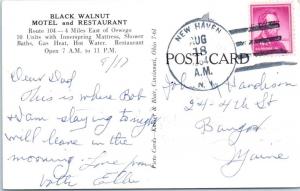 BLACK WALNUT
MOTEL and RESTAURANT
Route 104 — 4 Miles East of Oswego
10 Units with Innerspring Mattress, Shower
Baths, Gas Heat, Hot Water. Restaurant
Open 7 A.M. to 11 P.M.
8/17
Dear Dad
This is where Bob
+ I am staying tonight
will leave in the
morning. Love from
both
NEW HAVEN
AUG
18
A.M.
N.Y.
POST CARD
John Hardison
24-4th St
Bangor
Maine